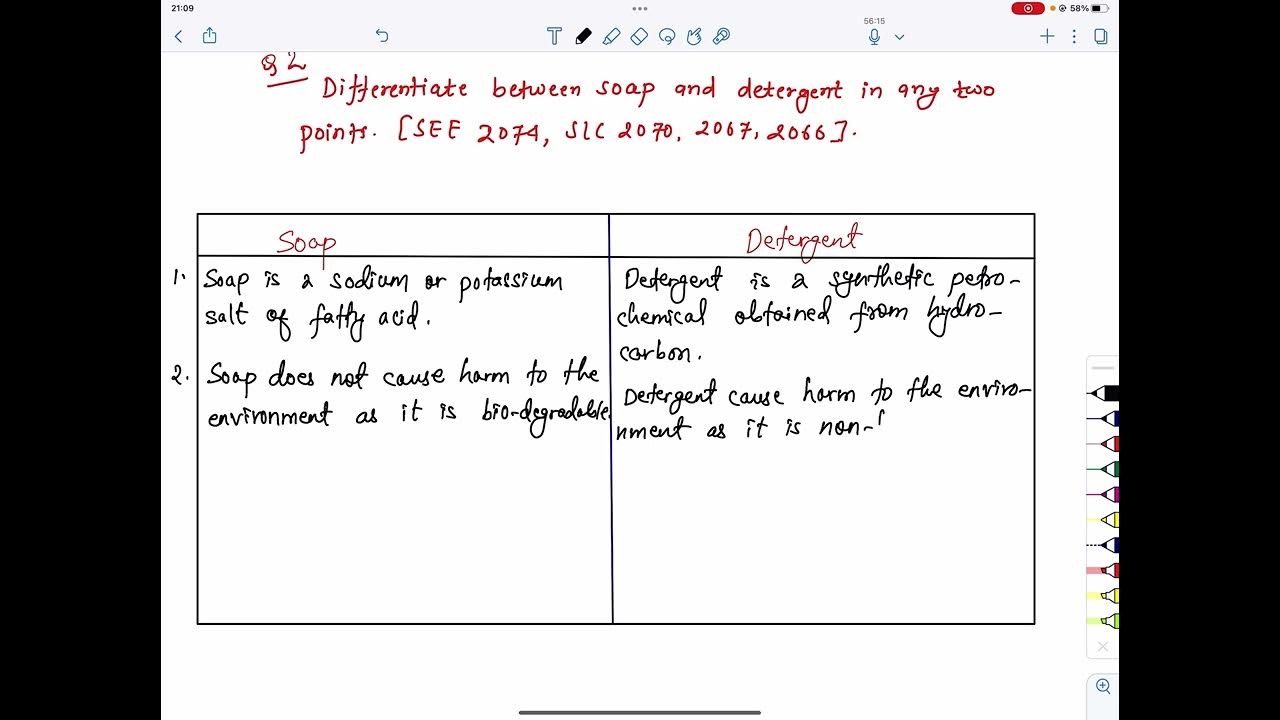 21:09
58%
56:15
Q 2
Differentiate between soap and detergent in any two
points. [SEE 2074, SLC 2070, 2067, 2066].
Soap
Detergent
1. Soap is a sodium or potassium
salt of fatty acid.
Detergent is a synthetic petro-
chemical obtained from hydro-
carbon.
2. Soap does not cause harm to the
environment as it is bio-degradable.
Detergent cause harm to the enviro-
nment as it is non-